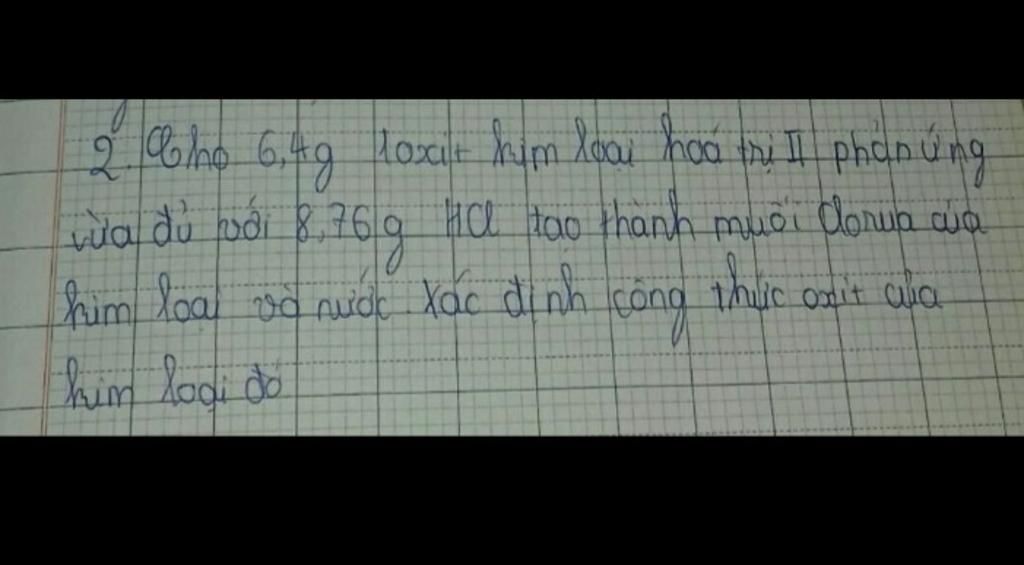 2. Cho 6,4g 1 oxit kim loại hoá trị II phản ứng
vừa đủ với 8,76g HCl tạo thành muối clorua của
kim loại và nước xác định công thức oxit của
kim loại đó